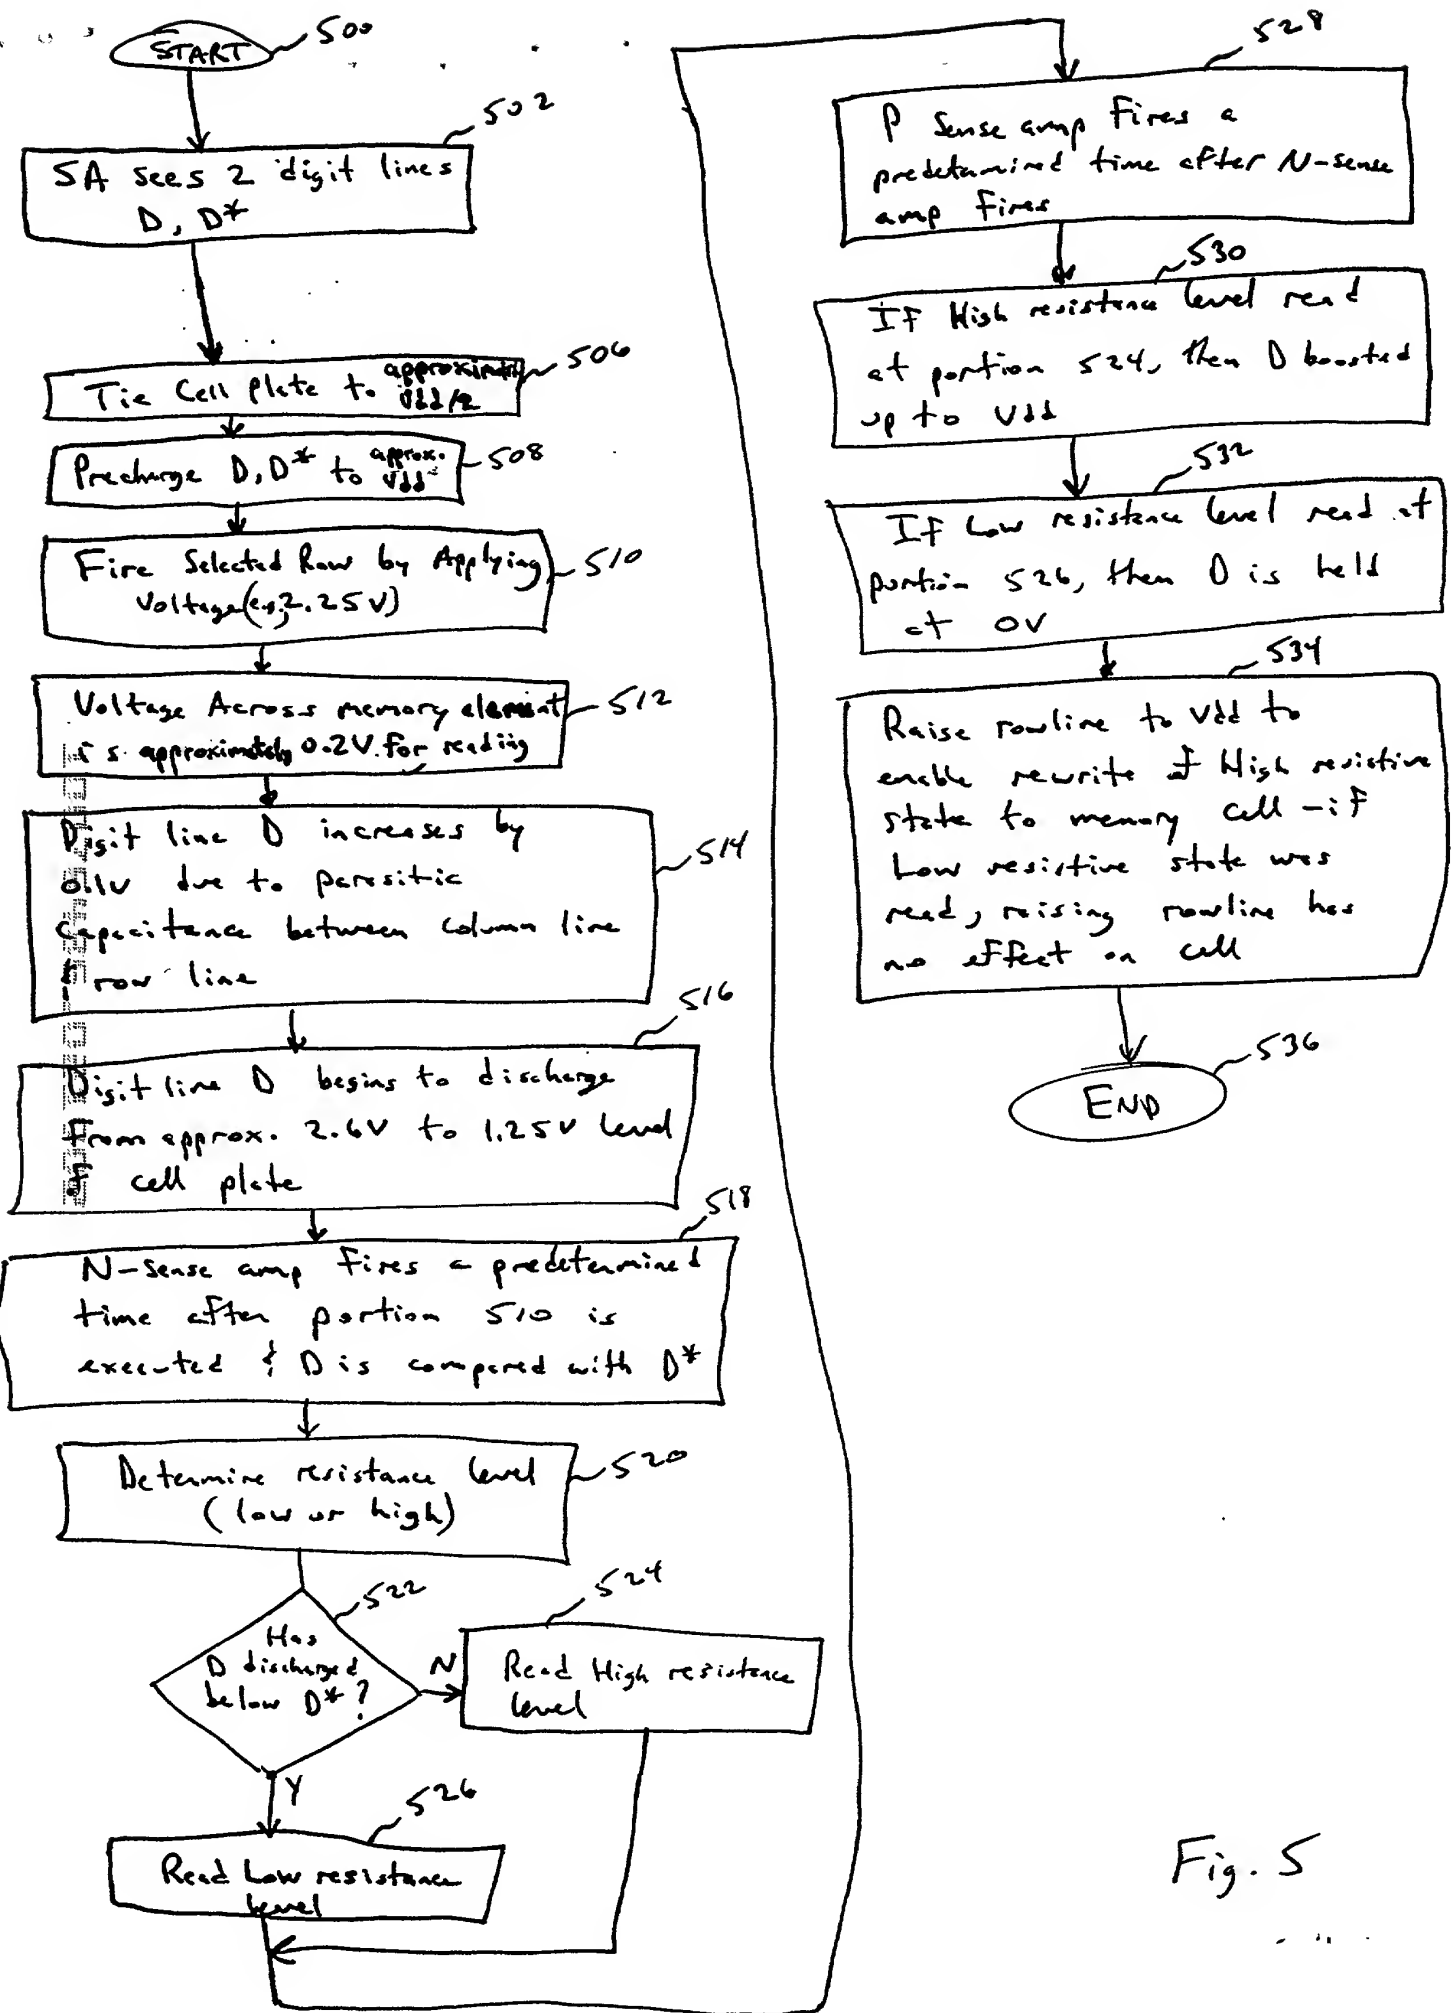 START
500
502
SA sees 2 digit lines
D, D*
506
approximately
Tie Cell Plate to Vdd/2
508
approx.
Precharge D, D* to Vdd
Fire Selected Row by Applying
Voltage (e.g., 2.25V)
510
Voltage Across memory element
is approximately 0.2V for reading
512
Digit line D increases by
0.1V due to parasitic
capacitance between column line
& row line
514
516
Digit line D begins to discharge
from approx. 2.6V to 1.25V level
of cell plate
518
N-sense amp fires a predetermined
time after portion 510 is
executed & D is compared with D*
Determine resistance level
(low or high)
520
522
Has
D discharged
below D*?
N
Y
524
Read High resistance
level
526
Read Low resistance
level
528
P sense amp fires a
predetermined time after N-sense
amp fires
530
If High resistance level read
at portion 524, then D boosted
up to Vdd
532
If Low resistance level read at
portion 526, then D is held
at 0V
534
Raise rowline to Vdd to
enable rewrite of High resistive
state to memory cell - if
Low resistive state was
read, raising rowline has
no effect on cell
536
END
Fig. 5